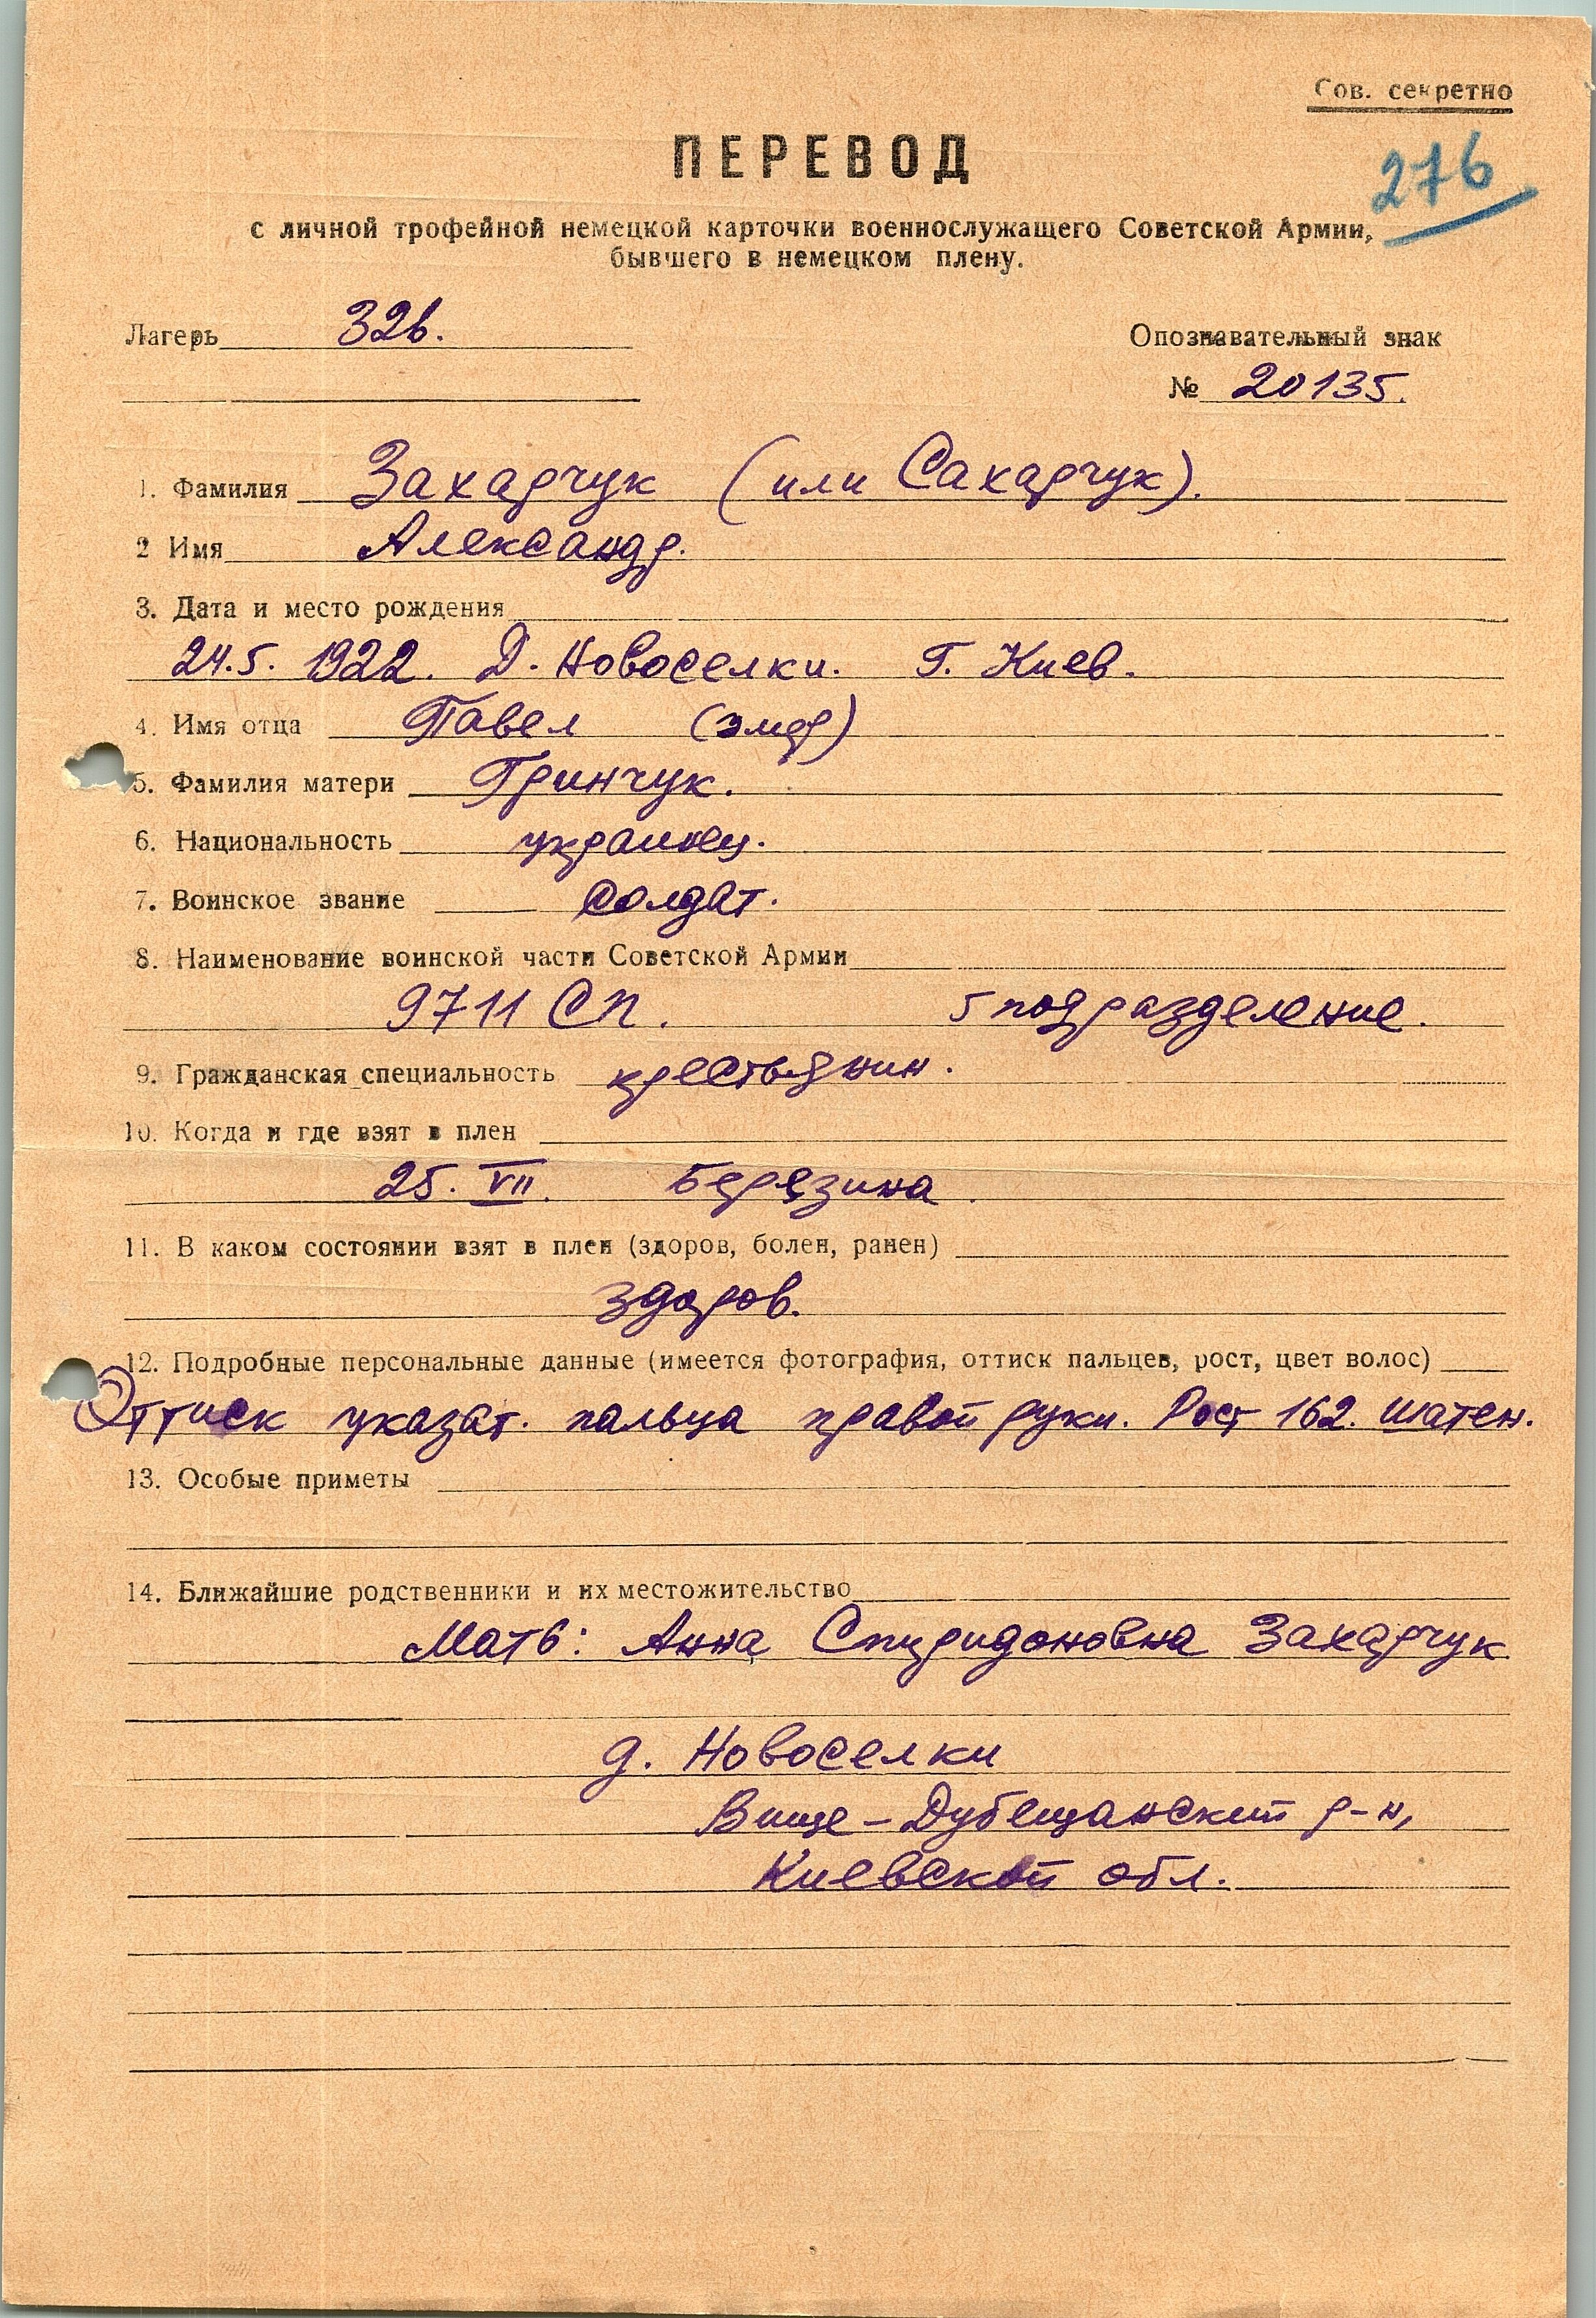 Сов. секретно
276
ПЕРЕВОД
с личной трофейной немецкой карточки военнослужащего Советской Армии,
бывшего в немецком плену.
Лагерь 326.
Опознавательный знак
№ 20135.
1. Фамилия Захарчук (или Сахарчук).
2 Имя Александр.
3. Дата и место рождения
24.5. 1922. Д. Новоселки. Г. Киев.
4. Имя отца Павел (умер)
5. Фамилия матери Гринчук.
6. Национальность украинец.
7. Воинское звание солдат.
8. Наименование воинской части Советской Армии
9711 СП. 5 подразделение.
9. Гражданская специальность крестьянин.
10. Когда и где взят в плен
25. VII. Березина.
11. В каком состоянии взят в плен (здоров, болен, ранен)
здоров.
12. Подробные персональные данные (имеется фотография, оттиск пальцев, рост, цвет волос)
Оттиск указат. пальца правой руки. Рост 162. шатен.
13. Особые приметы
14. Ближайшие родственники и их местожительство
Мать: Анна Спиридоновна Захарчук
д. Новоселки
Вище-Дубещанский р-н,
Киевской обл.